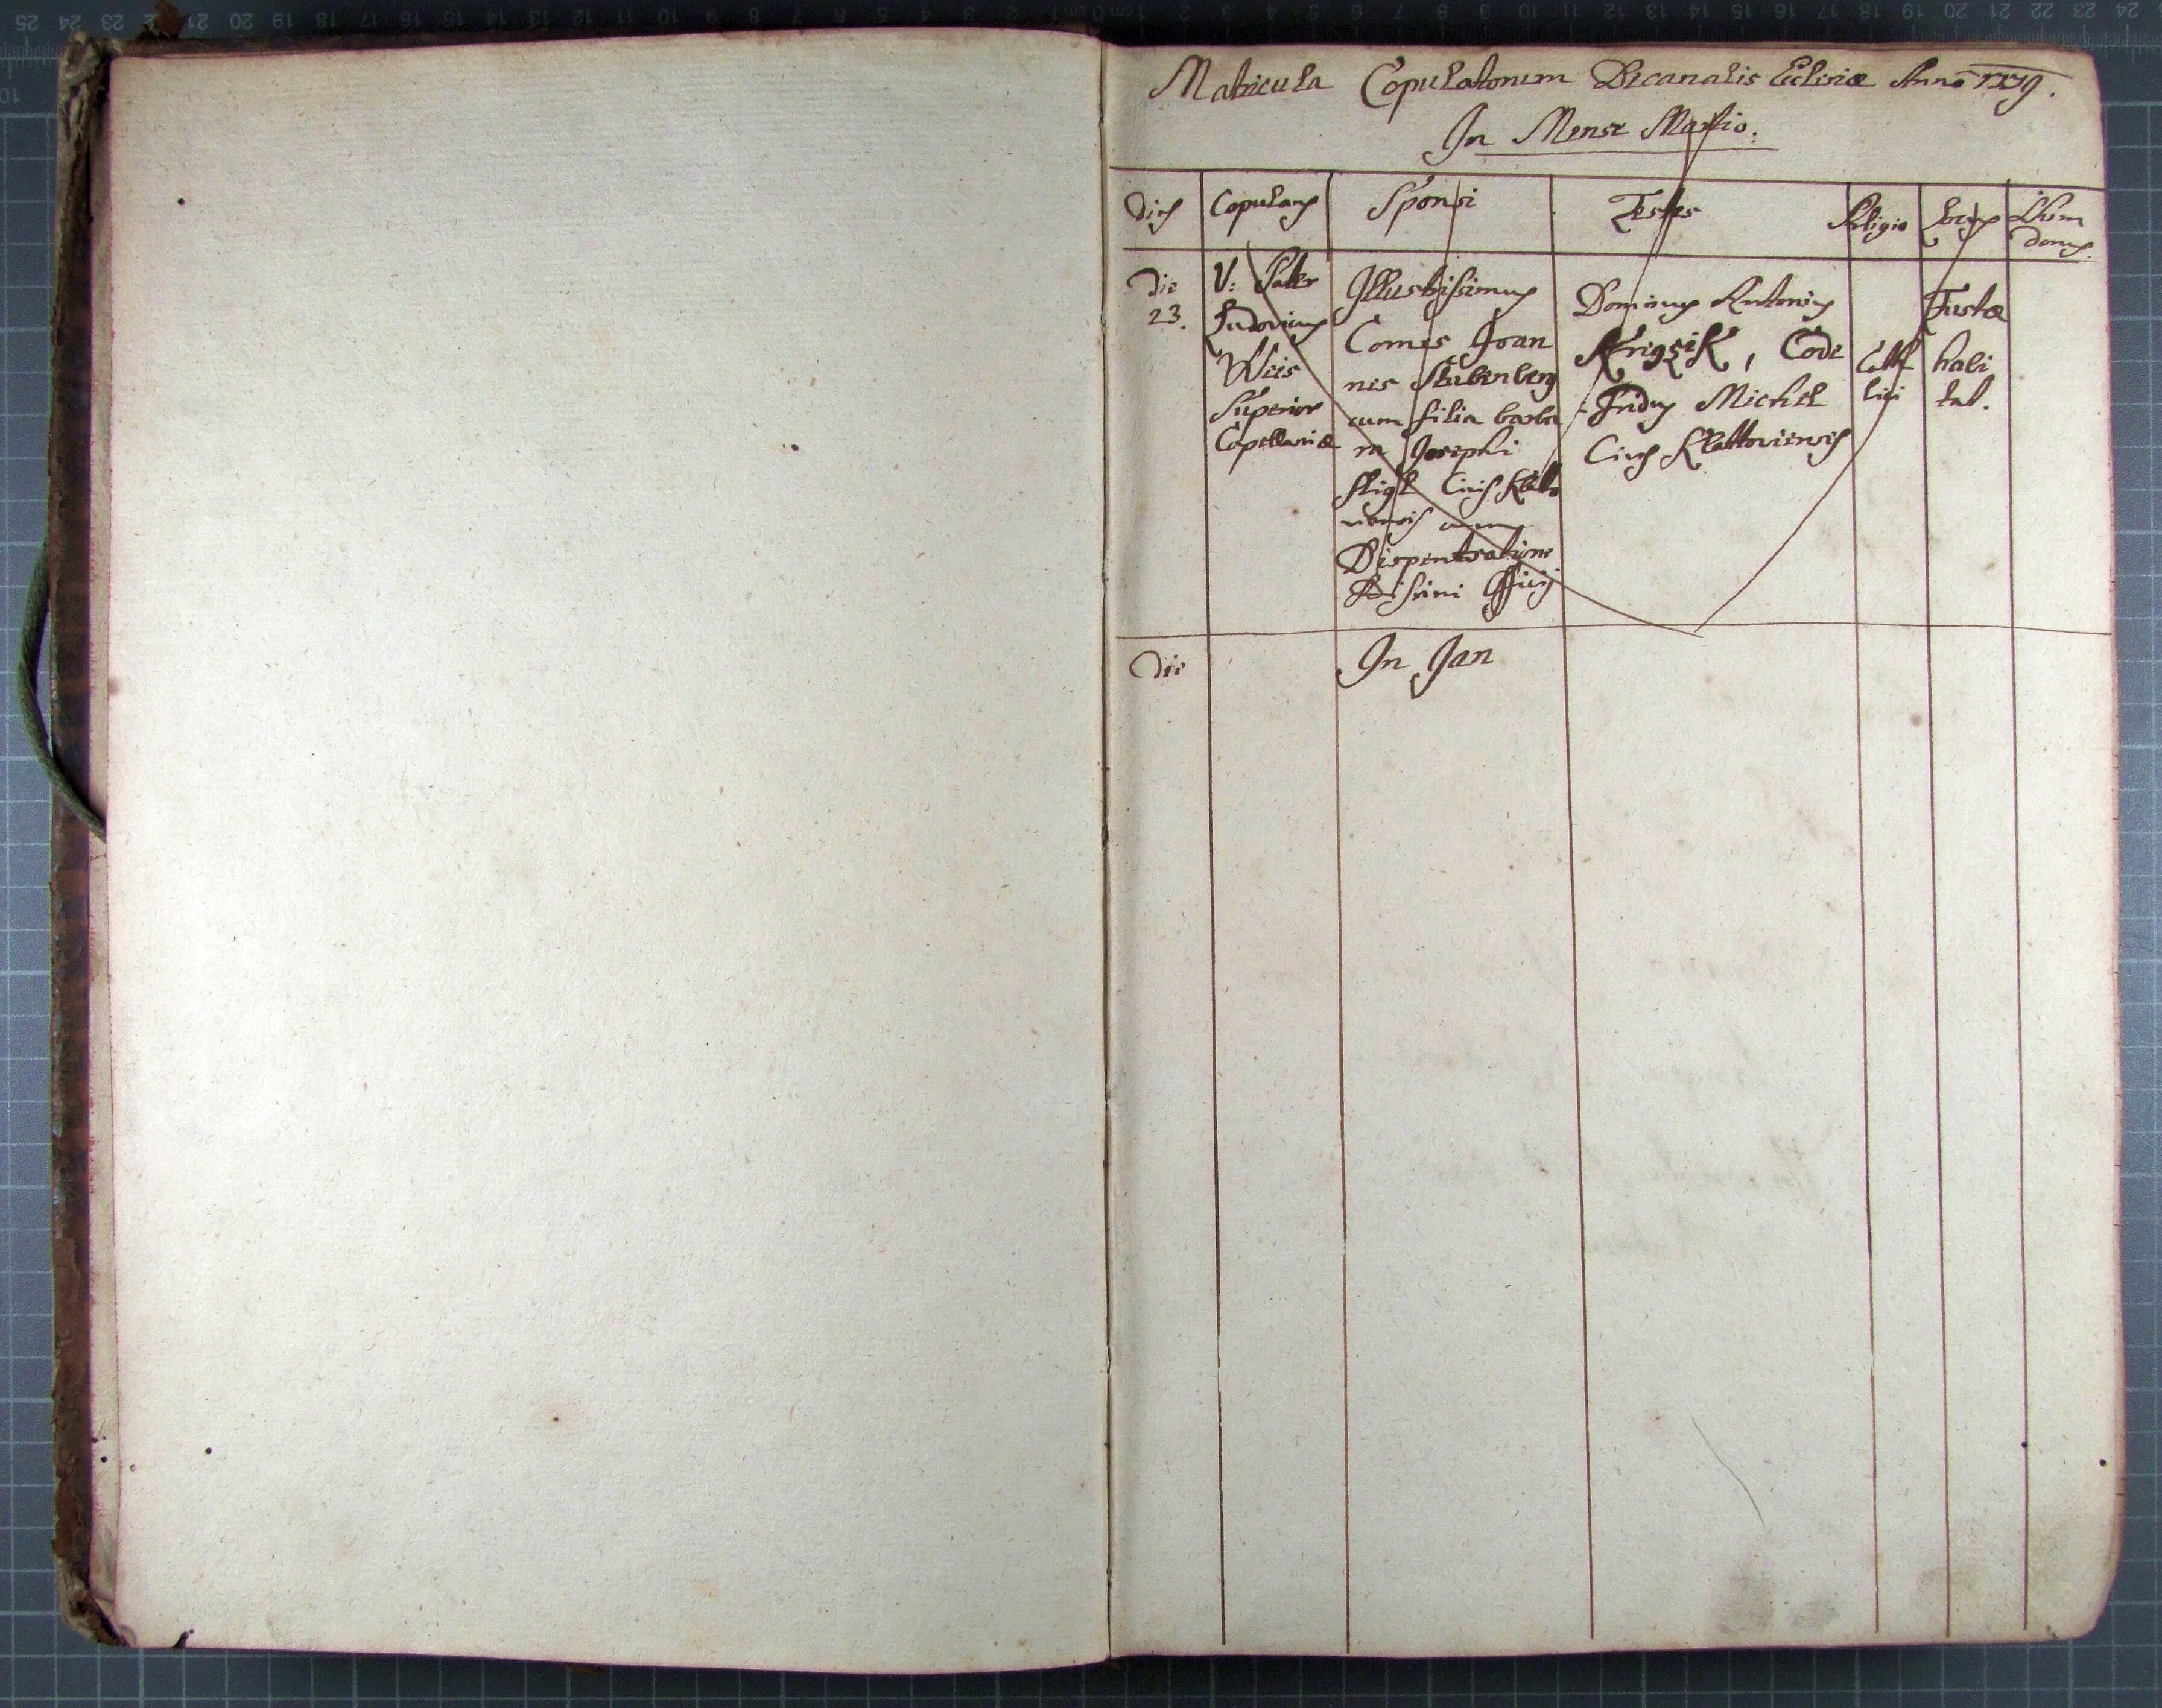 Matricula Copulatorum Decanalis Ecclesiæ Anno 1779.
In Mense Martio.
Dies Copulans Sponsi Testes Religio Locus Num
domus.
Die
23.
V: Pater
Ludovicus
Weis
Superior
Capellaniæ
Illustrissimus
Comes Joan
nes Stubenberg
cum filia barba
ra Josephi
Civis Klatto
viensis cum
Dispensatione
Officij
Dominus Antonius
Krigzik, Gode
fridus Michel
Cives Klattovienses
Catho
lici
habi
tat.
Die
In Jan